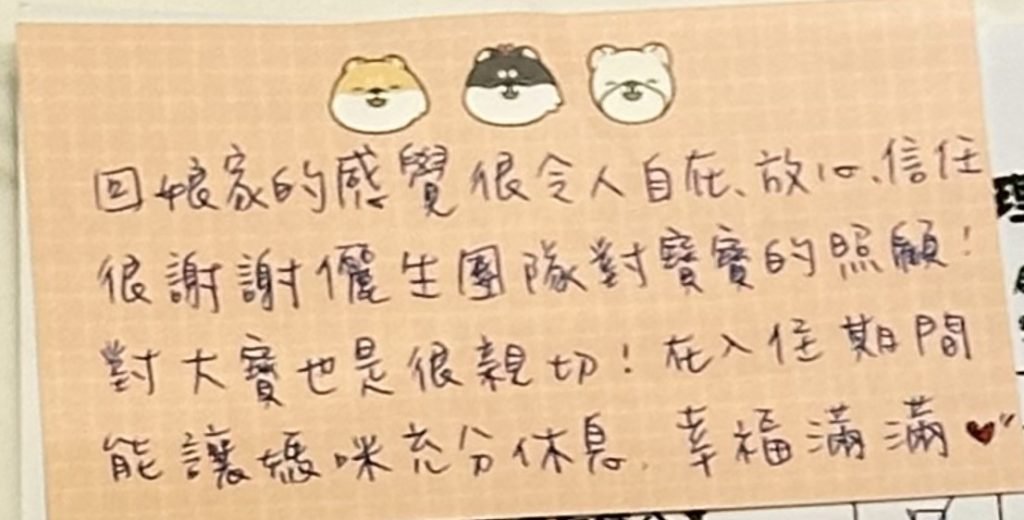 回娘家的感覺很令人自在、放心、信任
很謝謝儷生團隊對寶寶的照顧！
對大寶也是很親切！在入住期間
能讓媽咪充分休息，幸福滿滿♥